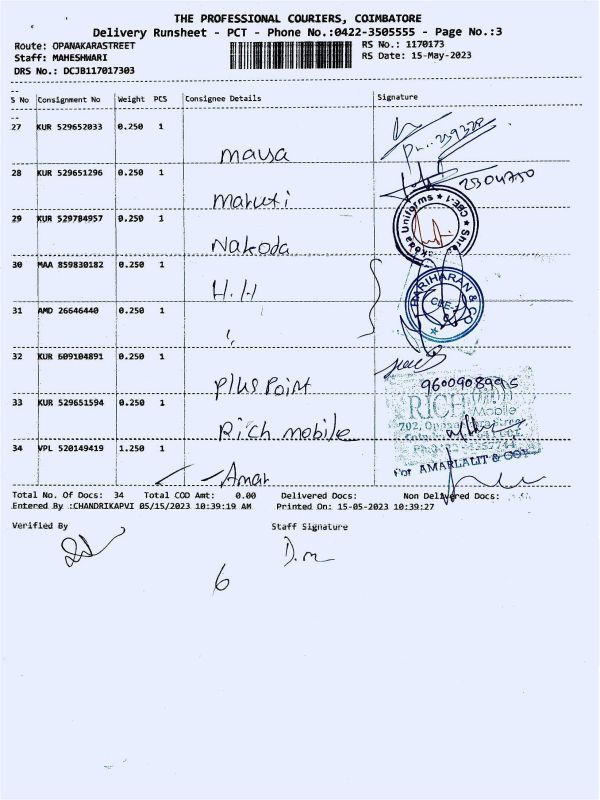 THE PROFESSIONAL COURIERS, COIMBATORE
Delivery Runsheet - PCT - Phone No.:0422-3505555 - Page No.:3
Route: OPANAKARASTREET
RS No.: 1170173
Staff: MAHESHWARI
RS Date: 15-May-2023
DRS No.: DCJB117017303
S No Consignment No Weight PCS Consignee Details Signature
27 KUR 529652033 0.250 1
maya
28 KUR 529651296 0.250 1
maruti
29 KUR 529784957 0.250 1
Nakoda
Uniforms ★ CBE-1 ★ Shree
30 MAA 859830182 0.250 1
H.H
HARIHARAN & CO
31 AMD 26646440 0.250 1
"
32 KUR 609104891 0.250 1
Plus Point
9600908995
33 KUR 529651594 0.250 1
Rich mobile
RICH Mobile
34 VPL 520149419 1.250 1
Amar
For AMARLALIT & COY
Total No. Of Docs: 34 Total COD Amt: 0.00 Delivered Docs: Non Delivered Docs:
Entered By :CHANDRIKAPVI 05/15/2023 10:39:19 AM Printed On: 15-05-2023 10:39:27
Verified By Staff Signature
D.m
6